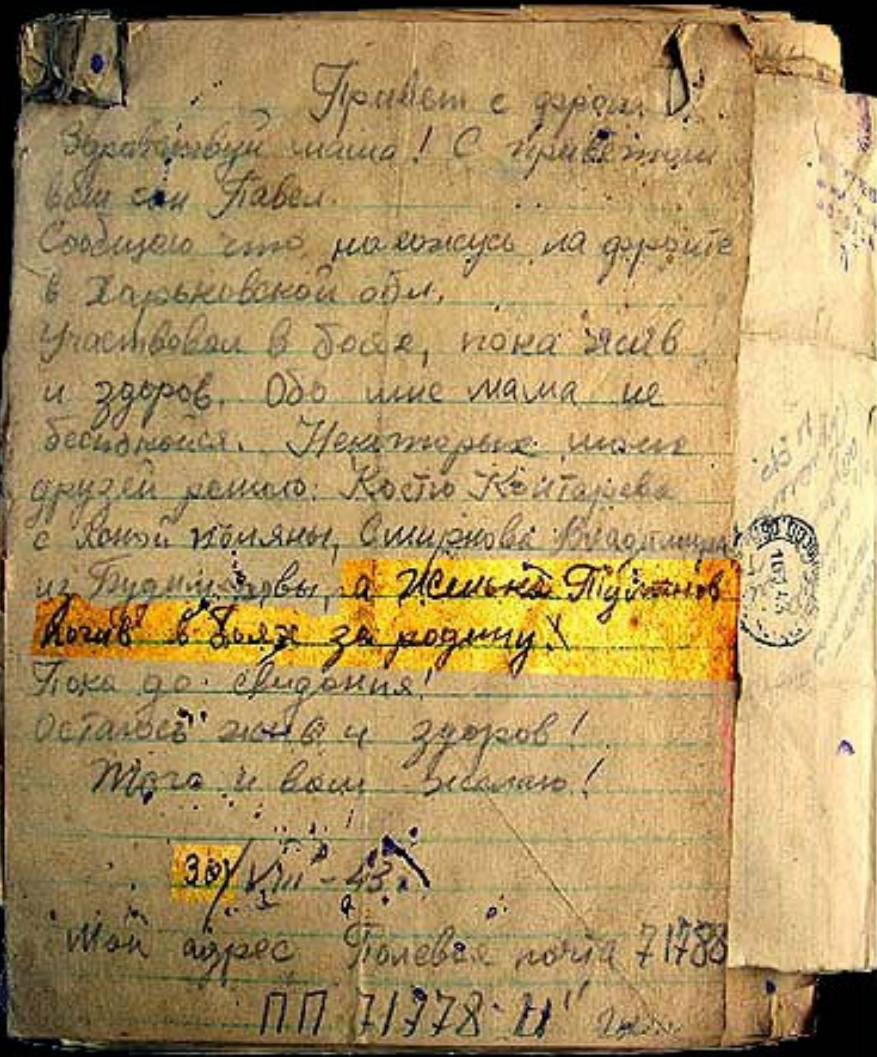 Привет с фронта
Здравствуй мама! С приветом
ваш сын Павел.
Сообщаю что нахожусь на фронте
в Харьковской обл.
Участвовал в боях, пока жив
и здоров. Обо мне мама не
беспокойся. Некоторых моих
друзей ранило: Костю
с поляны, Смирнова Владимира
из а Женька
погиб в боях за родину!
Пока до свидания!
Остаюсь жив и здоров!
Того и вам желаю!
30/VIII-43
Мой адрес Полевая почта 71788
ПП 71778